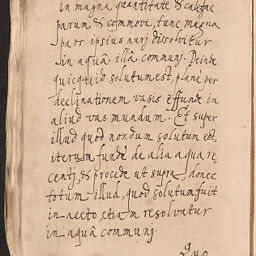 in magna quantitate & calefac
parum & commove, tunc magna
pars ipsius aurj dissolvitur
in aquâ illâ communj. Deinde
quicquid solutum est, plane per
declinationem vasis effunde in
aliud vas mundum. Et super
illud quod nondum solutum est,
iterum funde de alia aqua re,
centj, & procede ut supra, donec
totum illud, quod solutum fuit
in aceto, etiam resolvatur
in aquâ communj.
Quo